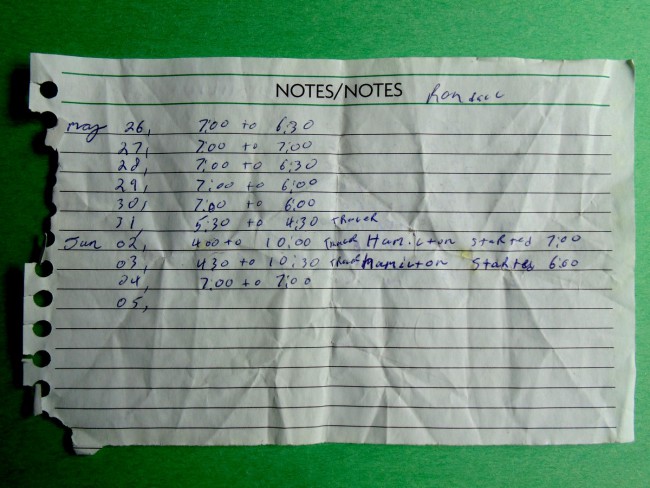 NOTES/NOTES
May 26, 7:00 to 6:30
27, 7:00 to 7:00
28, 7:00 to 6:30
29, 7:00 to 6:00
30, 7:00 to 6:00
31, 5:30 to 4:30 Truck
Jun 02, 400 to 10:00 Truck Hamilton Started 7:00
03, 430 to 10:30 Truck Hamilton Started 6:00
04, 7:00 to 7:00
05,